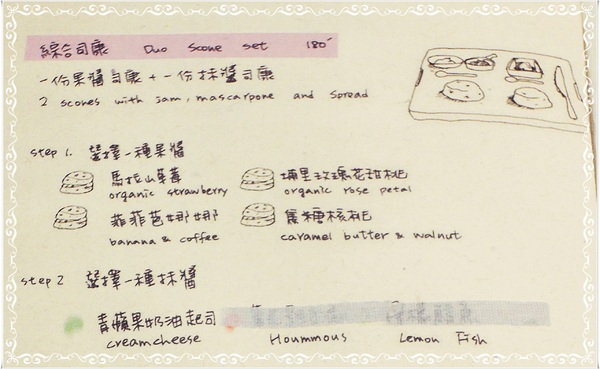 綜合司康 Duo scone set 180
一份果醬司康 + 一份抹醬司康
2 scones with jam, mascarpone and spread
step 1. 選擇一種果醬
馬拉山草莓 埔里玫瑰花甜桃
organic strawberry organic rose petal
菲菲芭娜娜 蜜糖核桃
banana & coffee caramel butter & walnut
step 2 選擇一種抹醬
青蘋果奶油起司
creamcheese Hoummous Lemon Fish